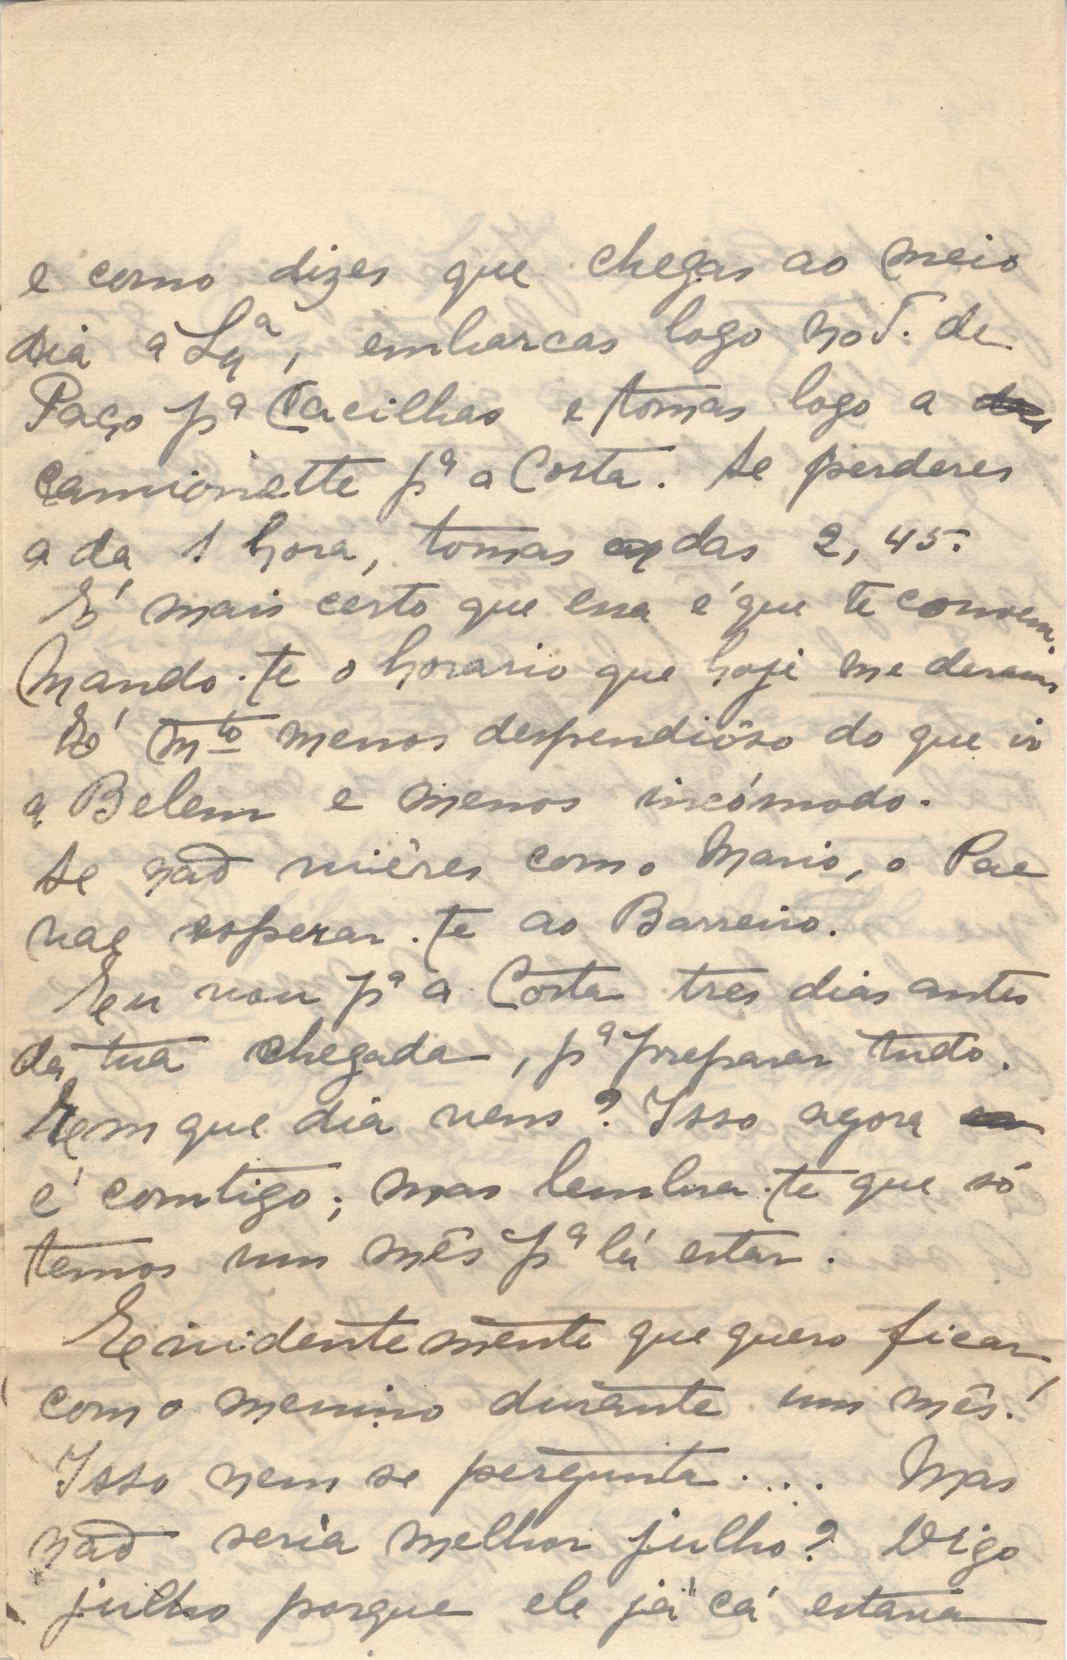 e como dizes que chegas ao meio
dia à Lxª, embarcas logo no T. do
Paço pª Cacilhas e tomas logo a
camionette pª a Costa. Se perderes
a da 1 hora, tomas a das 2,45.
É mais certo que essa é que te convem.
Mando-te o horario que hoje me deram
É mto menos despendiôso do que ir
a Belem e menos incómodo.
Se não viéres com o Mario, o Pae
vae esperar-te ao Barreiro.
Eu vou pª a Costa tres dias antes
da tua chegada, pª preparar tudo.
Em que dia vens? Isso agora
é comtigo; mas lembra-te que só
temos um mês pª lá estar.
Evidentemente que quero ficar
com o menino durante um mês!
Isso nem se pergunta.... Mas
não seria melhor julho? Digo
julho porque ele já cá estava